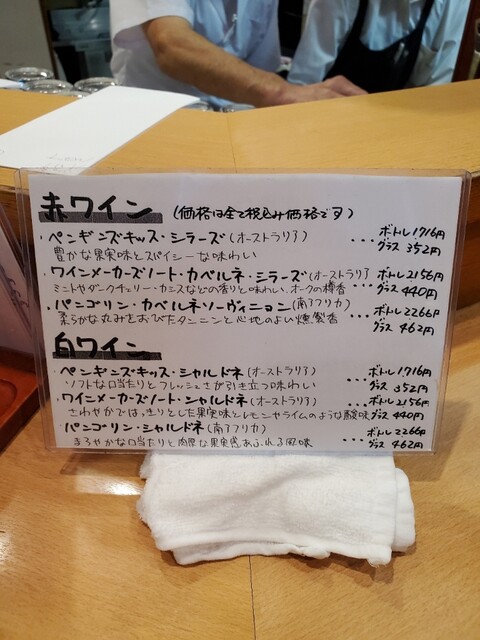 赤ワイン (価格は全て税込み価格です)
ペンギンズキッス・シラーズ(オーストラリア) ... ボトル1716円
豊かな果実味とスパイシーな味わい グラス 352円
ワインメーカーズノート・カベルネ・シラーズ(オーストラリア ... ボトル2156円
ミントやダークチェリー・カシスなどの香りと味わい、オークの樽香 グラス 440円
パンゴリン・カベルネソーヴィニョン(南アフリカ) ... ボトル2266円
柔らかな丸みをおびたタンニンと心地のよい燻製香 グラス 462円
白ワイン
ペンギンズキッス・シャルドネ(オーストラリア) ボトル1,716円
ソフトな口当たりとフレッシュさが引き立つ味わい ... グラス 352円
ワインメーカーズノート・シャルドネ(オーストラリア) ... ボトル2156円
さわやかではっきりとした果実味とレモンやライムのような酸味 グラス440円
パンゴリン・シャルドネ(南アフリカ) ボトル 2266円
まろやかな口当たりと肉厚な果実感あふれる風味 ... グラス 462円